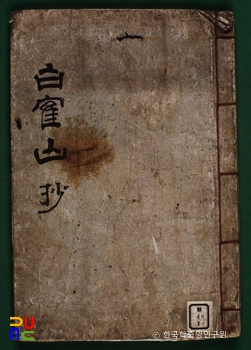 一
白寉山抄
© 한국학중앙연구원